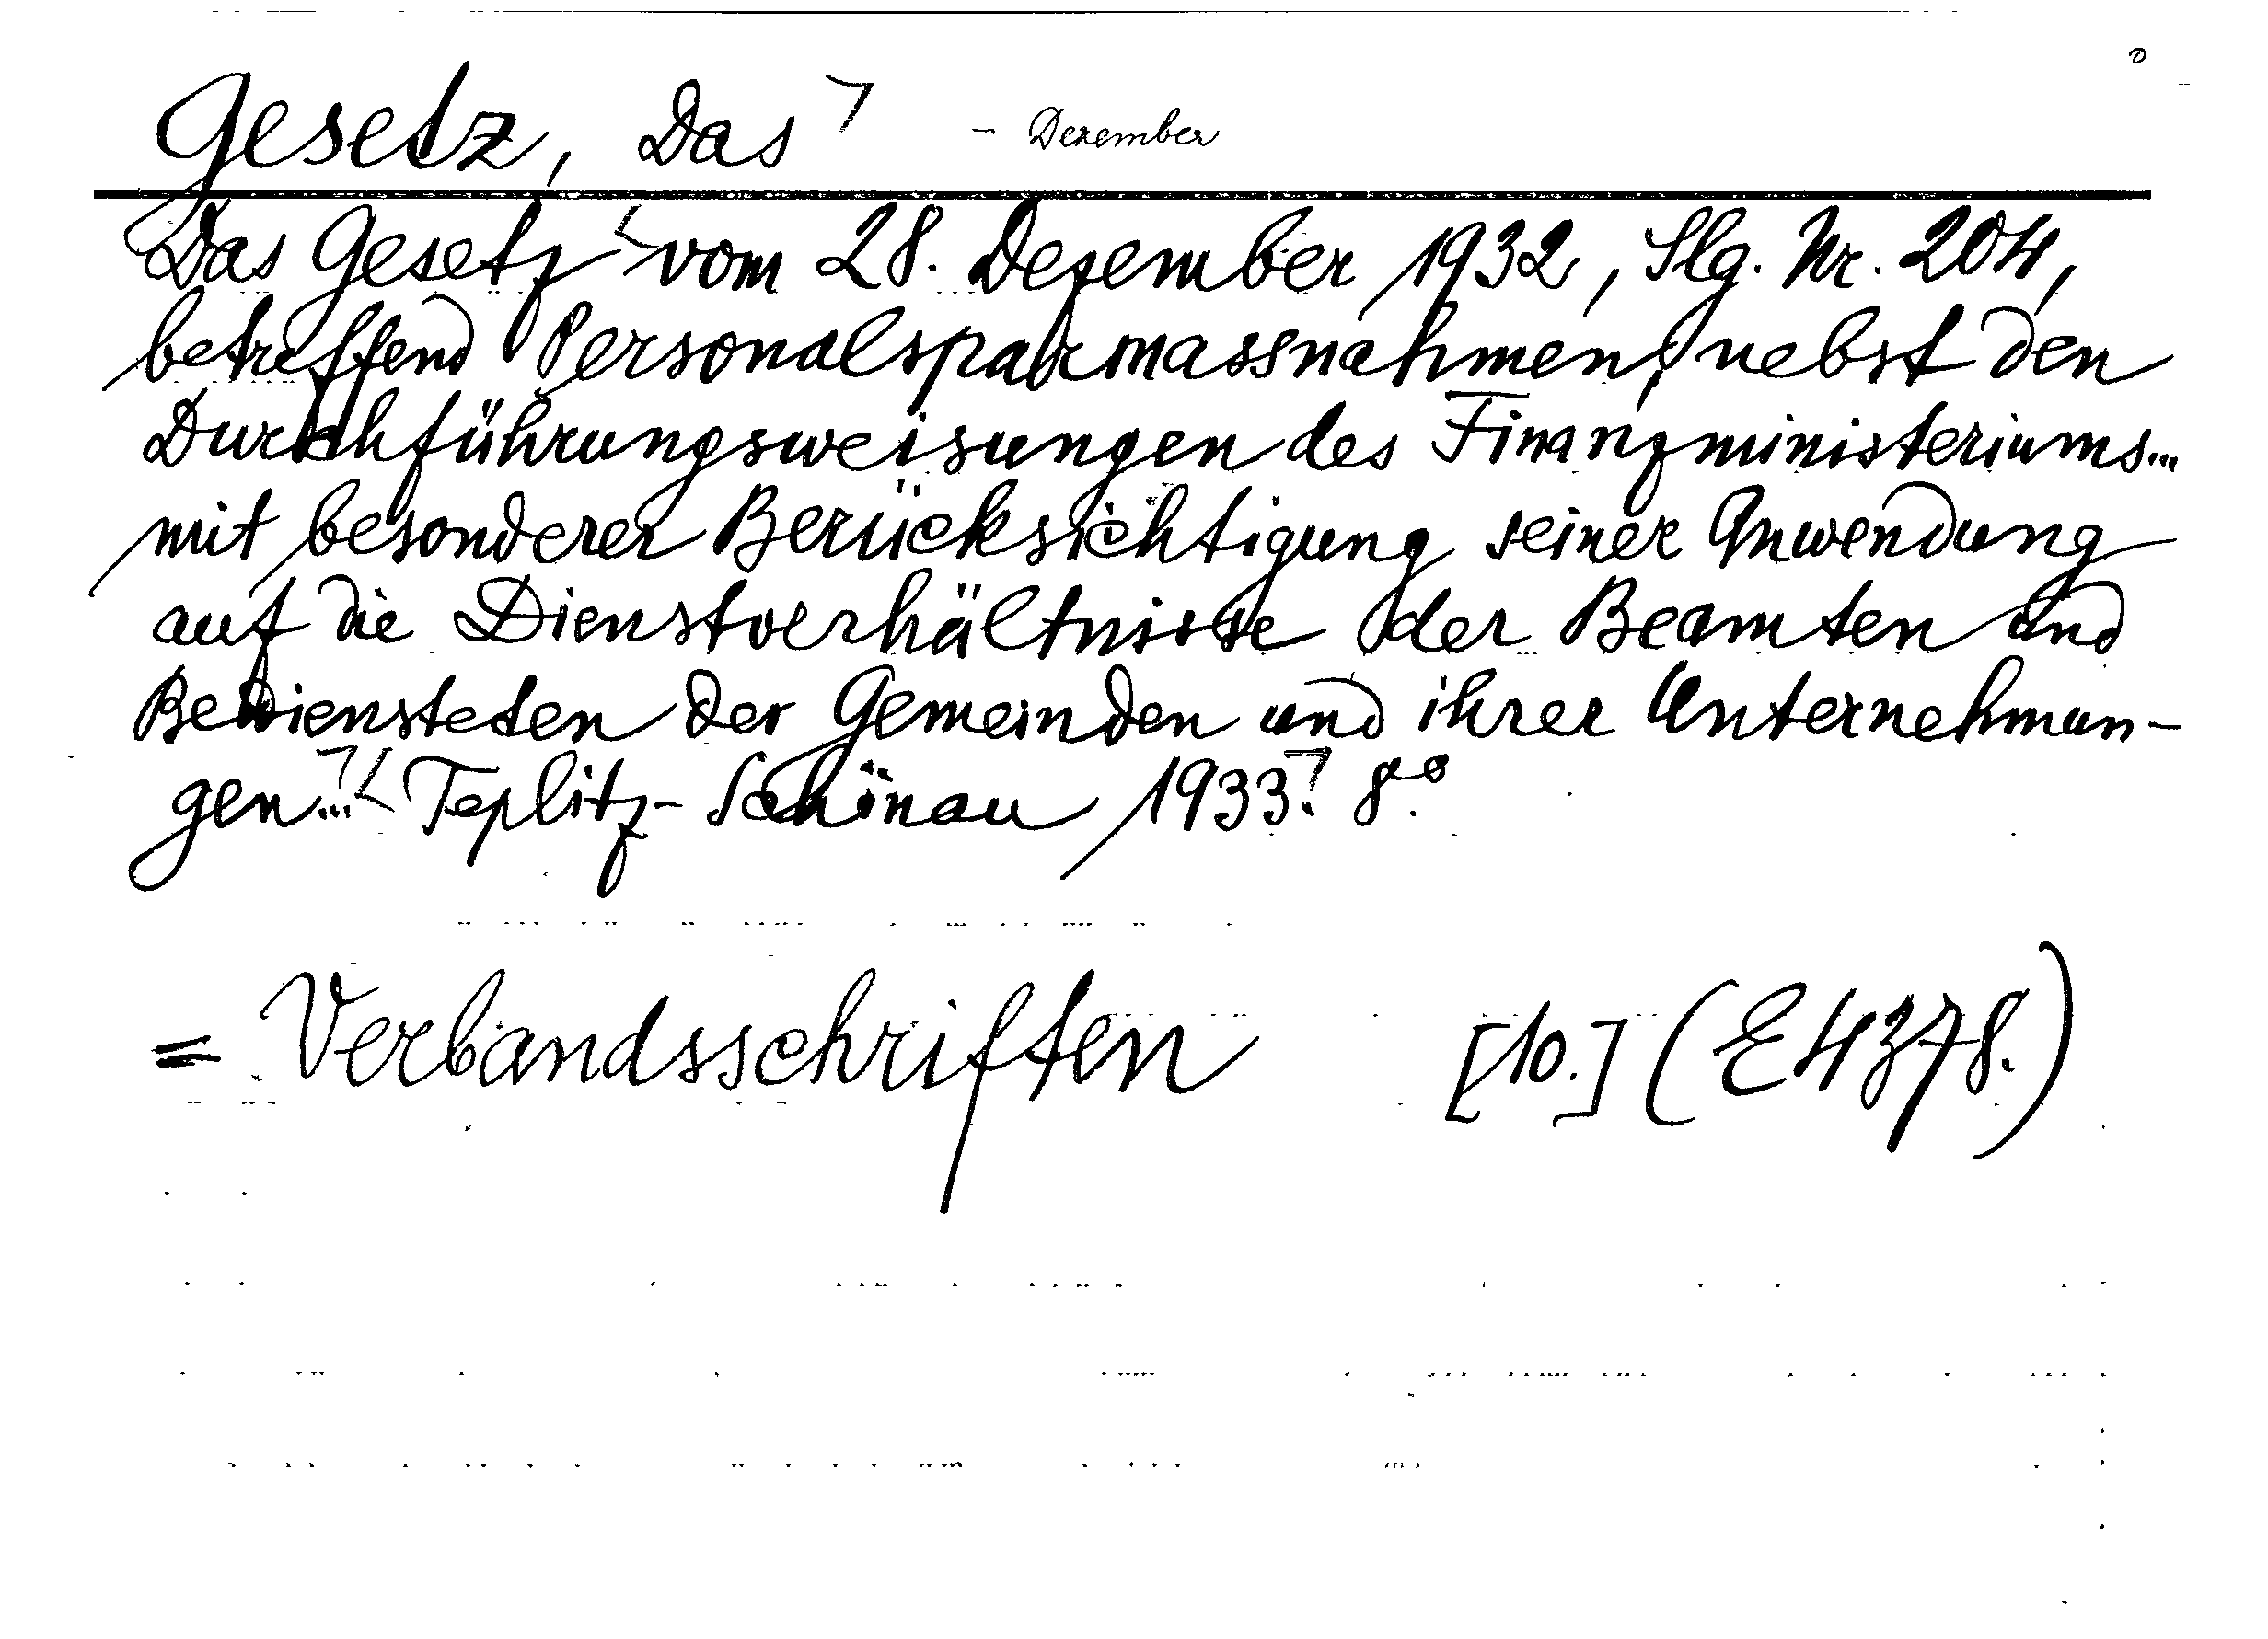 Gesetz, Das - Dezember
Das Gesetz vom 28. Dezember 1932, Slg. Nr. 204,
betreffend Personalsparmassnahmen, nebst den
Durchführungsweisungen des Finanzministeriums...
mit besonderer Berücksichtigung seiner Anwendung
auf die Dienstverhältnisse der Beamten und
Bediensteten der Gemeinden und ihrer Unternehmun-
gen... Teplitz-Schönau 1933. 8°.
= Verbandsschriften [10.] (E 4378.)